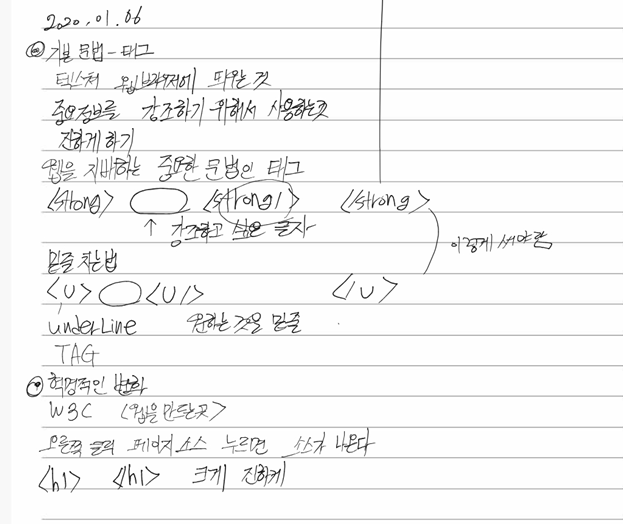 2020.01.06
⑥ 기본 문법 - 태그
텍스처 웹브라우저에 띄우는 것
중요정보를 강조하기 위해서 사용하는것
진하게 하기
웹을 지배하는 중요한 문법인 태그
<strong> <strong/> </strong>
↑ 강조하고 싶은 글자
이렇게 써야함
밑줄 치는법
<u> <u/> </u>
underLine 원하는 것을 밑줄
TAG
혁명적인 변화
W3C <웹을 만드는곳>
오른쪽 클릭 페이지 소스 누르면 소스가 나온다
<h1> </h1> 크게 진하게